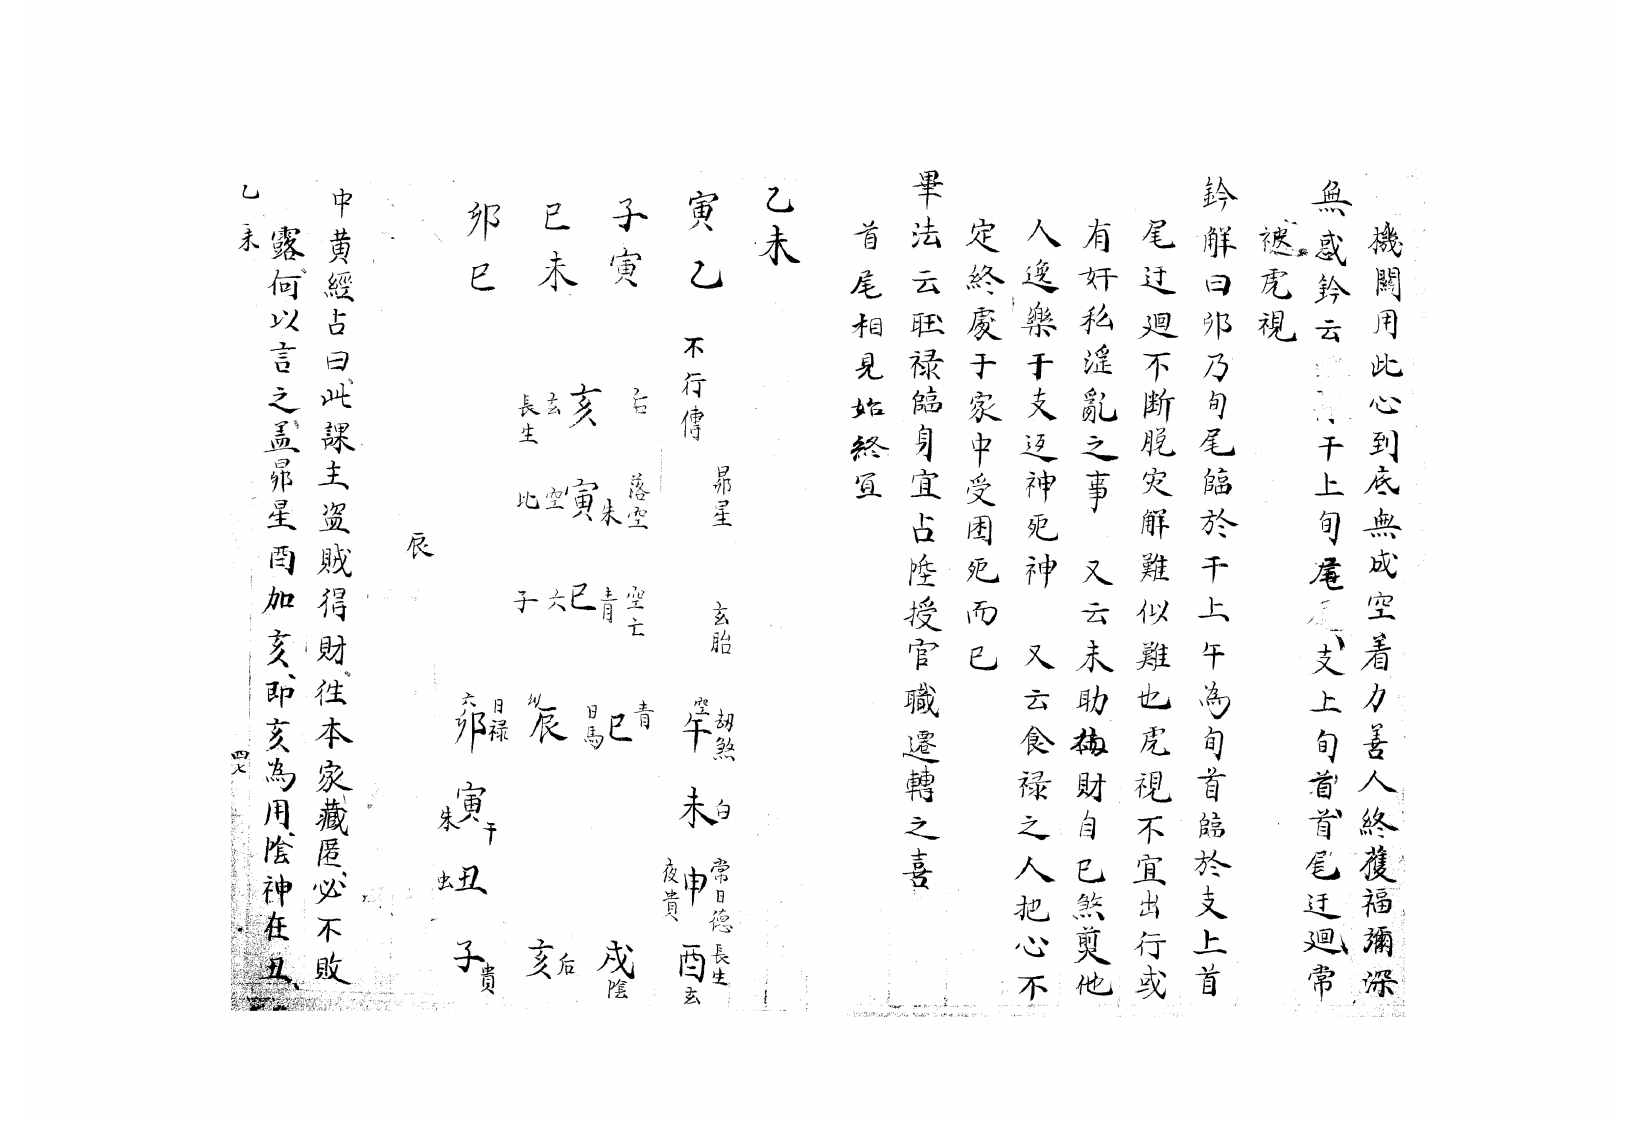 機關用此心到底無成空着力善人終獲福彌深
無惑鈐云干上旬尾支上旬首首尾迂廻常
被虎視
鈐解曰卯乃旬尾臨於干上午為旬首臨於支上首
尾迂廻不断脫灾解難似難也虎視不宜出行或
有奸私滛亂之事 又云未助財自已煞剪他
人逸樂于支迓神死神 又云食禄之人把心不
定終處于家中受困死而已
畢法云旺禄臨身宜占陞授官職遷轉之喜
首尾相見始終宜
乙未
寅乙 不行傳 昴星 玄胎
子寅
巳未
卯巳
后 落空 空亡
亥 寅朱 巳青
玄 空 六
長生 比 子
空午劫煞 未白 申常日德夜貴 酉長生玄
日馬巳青 戌陰
辰 亥后
六卯日禄 寅干朱 丑虫 子貴
辰
中黄經占曰此課主盗賊得財徃本家藏匿必不敗
露何以言之盖昴星酉加亥即亥為用陰神在丑
乙未
四七